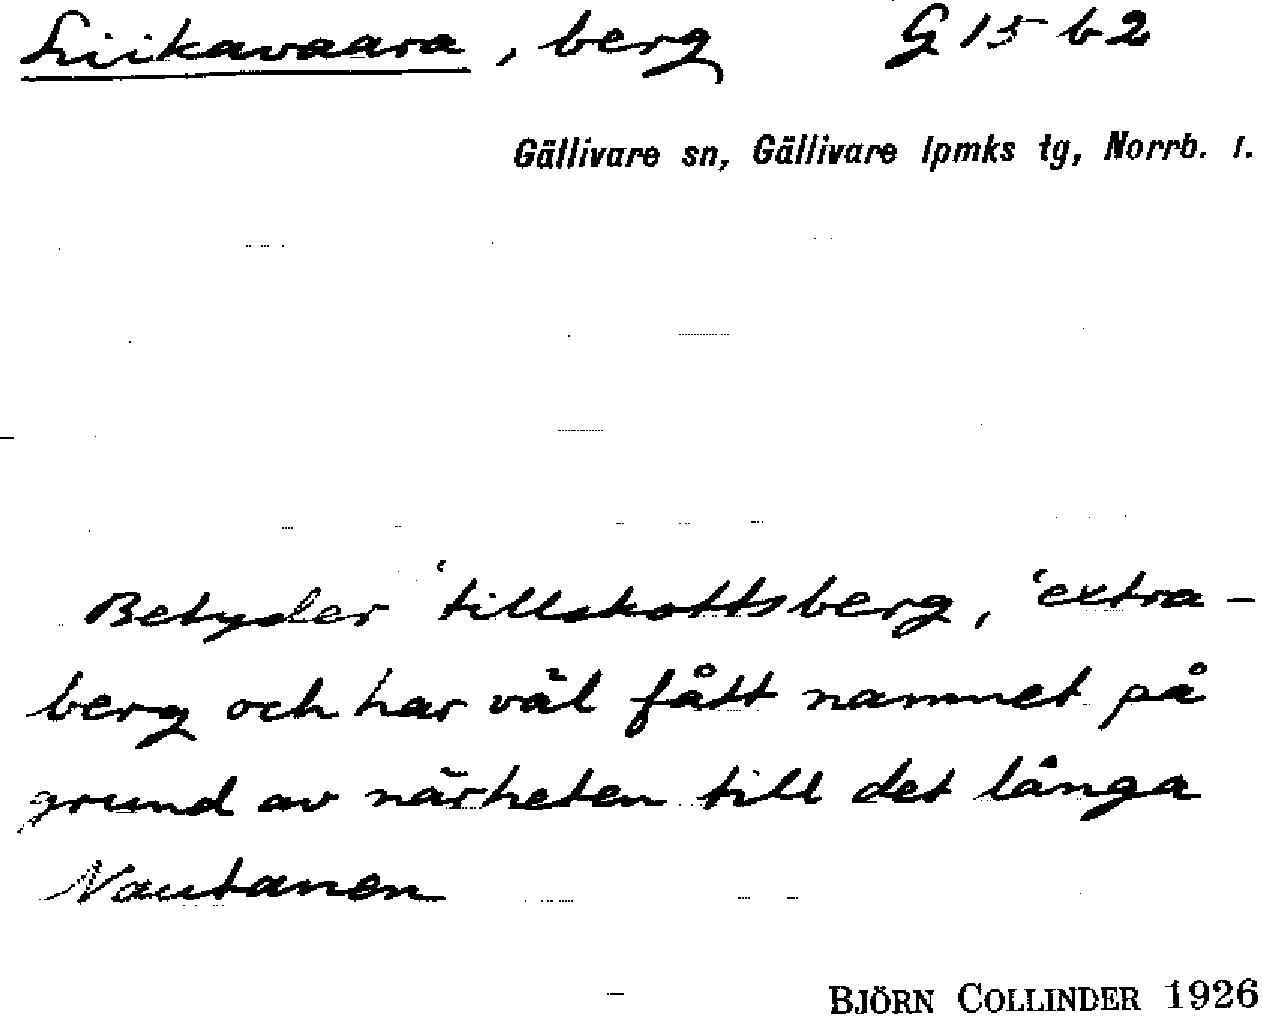 Liikavaara, berg G 15 b2
Gällivare sn, Gällivare lpmks tg, Norrb. l.
Betyder ‘tillskottsberg, ‘extra-
berg och har väl fått namnet på
grund av närheten till det långa
Nautanen
BJÖRN COLLINDER 1926